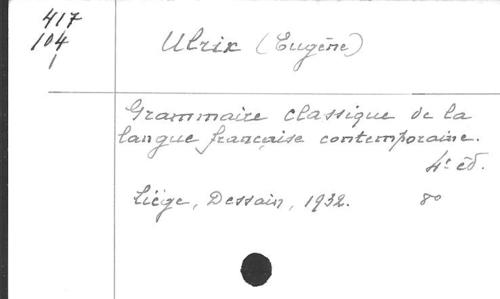 417
104
1
Ulrix (Eugène)
Grammaire classique de la
langue française contemporaine.
4e éd.
Liége, Dessain, 1932. 8o